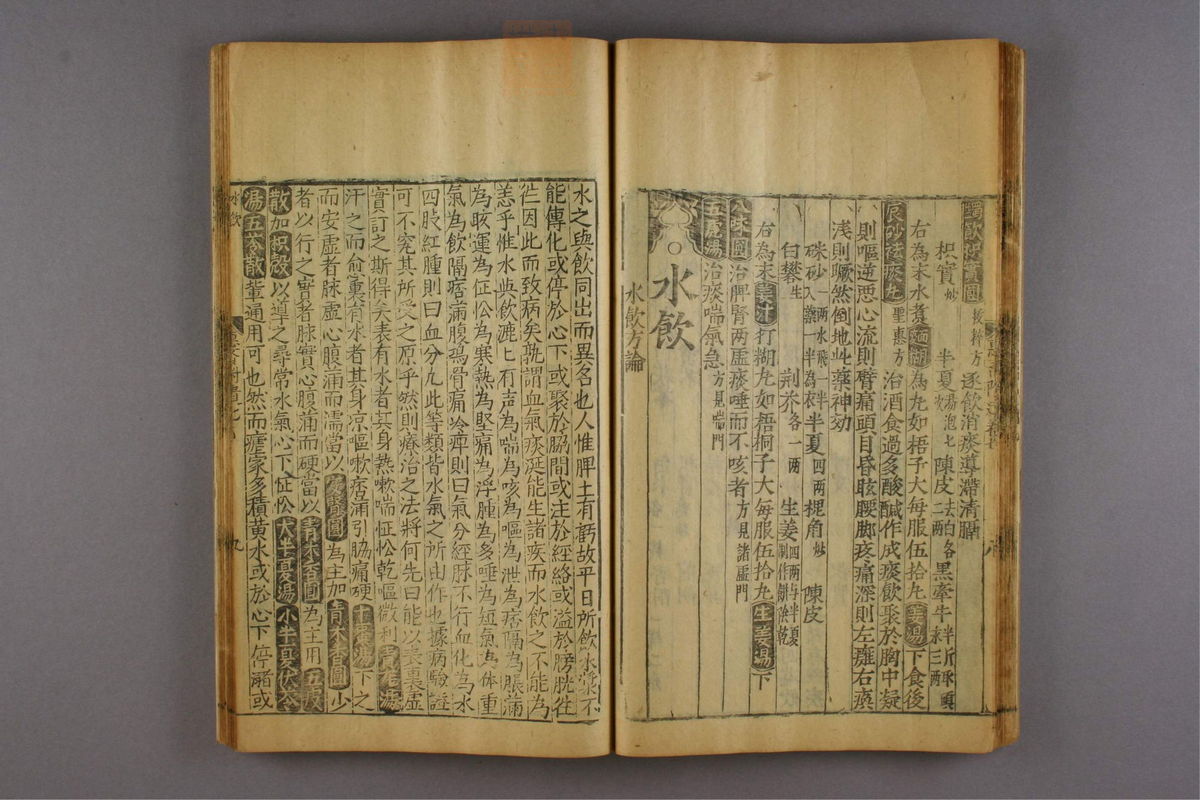 蠲飲枳實圓 拔粹方 逐飲消痰導滯清膈
枳實炒 半夏湯泡七次 陳皮去白各二兩 黑牽牛半斤取頭末三兩
右為末水煮麵糊為丸如梧子大每服伍拾丸姜湯下食後
辰砂祛痰丸 聖惠方 治酒食過多酸醎作成痰飲聚於胸中凝
則嘔逆惡心流則臂痛頭目昏眩腰脚疼痛深則左癱右瘓
淺則蹶然倒地此藥神効
硃砂一兩水飛一半入藥一半為衣 半夏四兩 梍角炒 陳皮
白礬生 荆芥各一兩 生姜四兩与半夏制作餅陰乾
右為末姜汁打糊丸如梧桐子大每服伍拾丸生姜湯下
八味圓 治脾腎兩虛痰唾而不咳者方見諸虛門
五虎湯 治痰喘氣急方見喘門
水飲
水飲方論
水之與飲同出而異名也人惟脾土有虧故平日所飲水漿不
能傳化或停於心下或聚於脇間或注於經絡或溢於膀胱往
往因此而致病矣孰謂血氣痰涎能生諸疾而水飲之不能為
恙乎惟水與飲漉〻有声為喘為咳為嘔為泄為痞隔為脹滿
為眩運為怔忪為寒熱為堅痛為浮腫為多唾為短氣為体重
氣為飲隔痞滿腹鳴骨痛冷痺則曰氣分經脉不行血化為水
四肢紅腫則曰血分凢此等類皆水氣之所由作也據病驗證
可不究其所受之原乎然則療治之法將何先曰能以表裏虛
實訂之斯得矣表有水者其身熱嗽喘怔忪乾嘔微利青龍湯
汗之而愈裏有水者其身凉嘔嗽痞滿引脇痛硬十棗湯下之
而安虛者脉虛心腹痛而濡當以安腎圓為主加青木香圓少
者以行之實者脉實心腹滿而硬當以青木香圓為主用五皮
散加枳殼以導之尋常水氣心下怔忪大半夏湯小半夏茯苓
湯五苓散輩通用可也然而瘧家多積黃水或於心下停瀦或
水飲
九